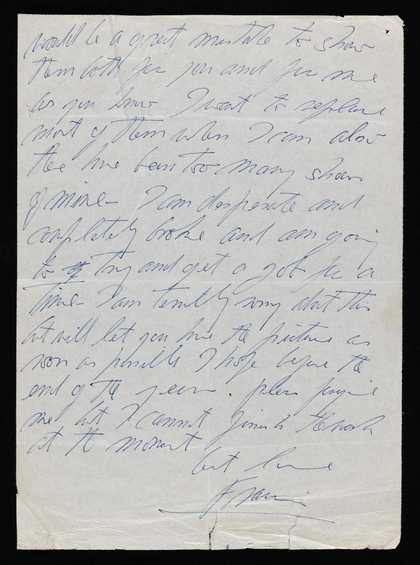 would be a great mistake to show
them both for you and for me
as you know I want to replace
most of them when I can also
there has been too many shows
of mine - I am desperate and
completely broke and am going
to try and get a job for a
time I am terribly sorry about this
but will let you have the pictures as
soon as possible I hope before the
end of the year. please forgive
me but I cannot finish the work
at the moment
best love
Francis